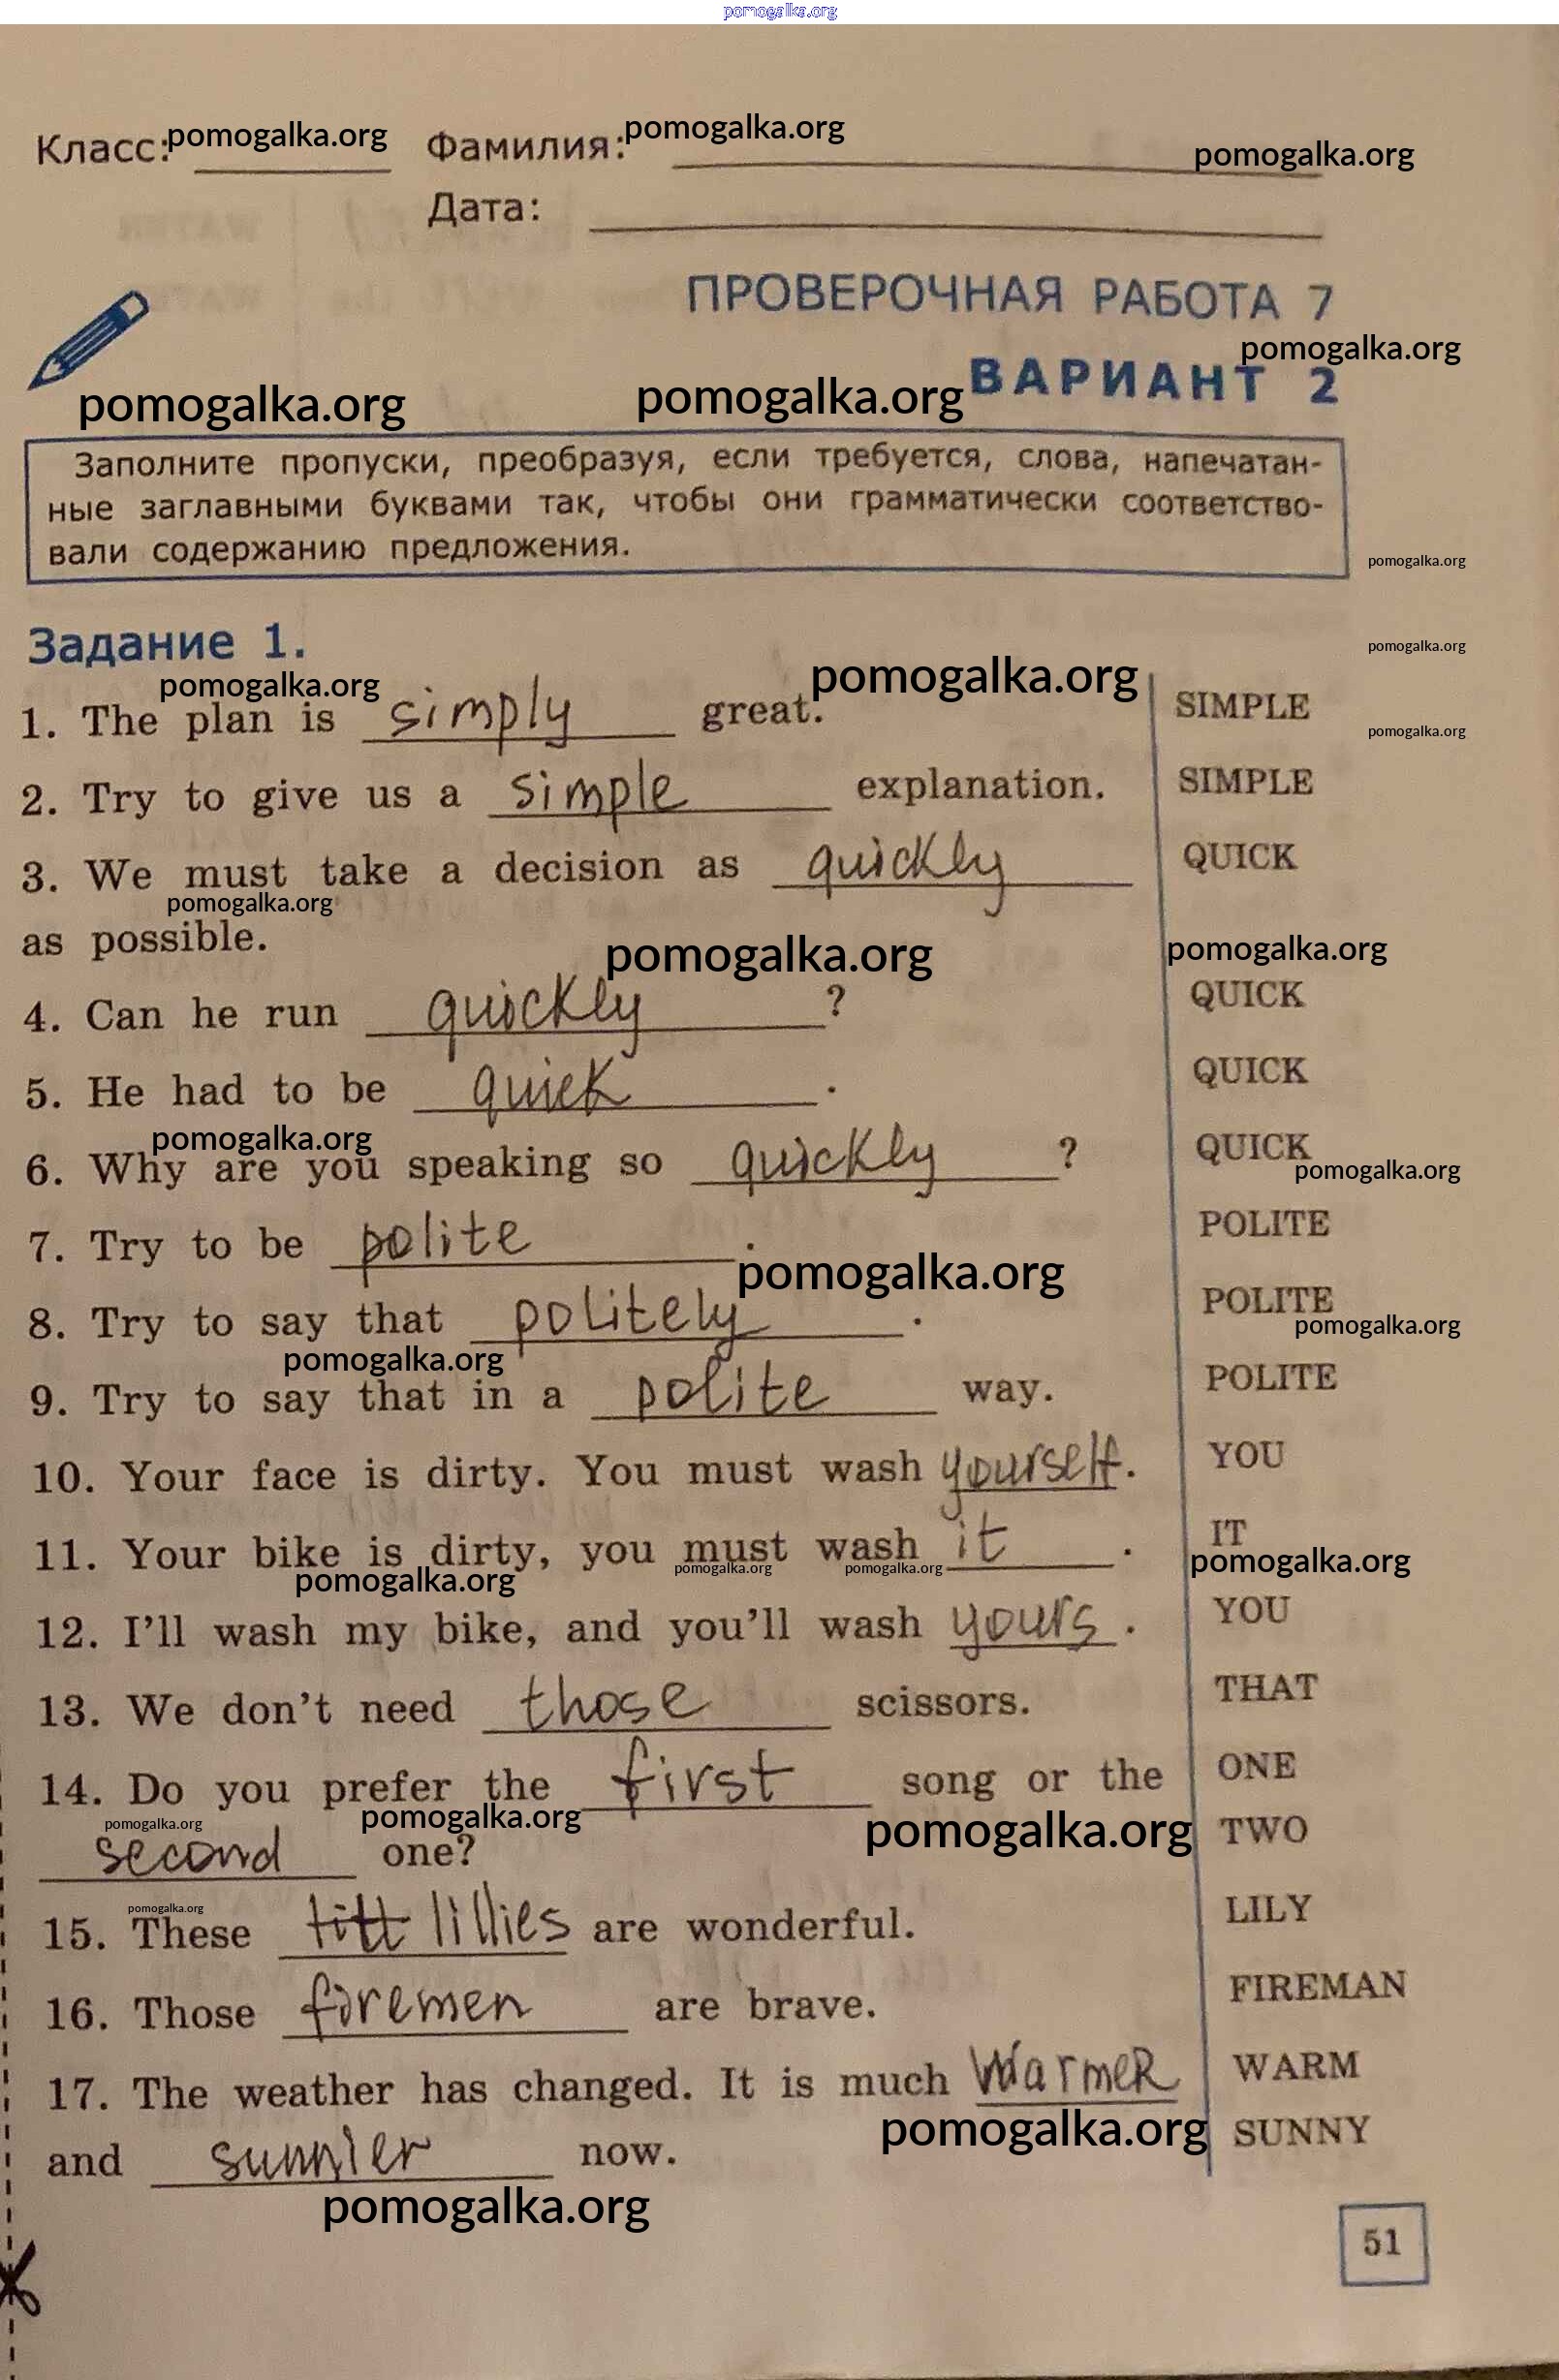 pomogalka.org
Класс: pomogalka.org Фамилия: pomogalka.org pomogalka.org
Дата:
ПРОВЕРОЧНАЯ РАБОТА 7
pomogalka.org
pomogalka.org pomogalka.org ВАРИАНТ 2
Заполните пропуски, преобразуя, если требуется, слова, напечатан-
ные заглавными буквами так, чтобы они грамматически соответство-
вали содержанию предложения.
pomogalka.org
Задание 1.
pomogalka.org
pomogalka.org pomogalka.org
1. The plan is simply great. SIMPLE
pomogalka.org
2. Try to give us a simple explanation. SIMPLE
3. We must take a decision as quickly QUICK
pomogalka.org
as possible.
pomogalka.org pomogalka.org
4. Can he run quickly ? QUICK
5. He had to be quick . QUICK
pomogalka.org
6. Why are you speaking so quickly ? QUICK
pomogalka.org
7. Try to be polite . POLITE
pomogalka.org
8. Try to say that politely . POLITE
pomogalka.org
pomogalka.org
9. Try to say that in a polite way. POLITE
10. Your face is dirty. You must wash yourself. YOU
11. Your bike is dirty, you must wash it . IT
pomogalka.org pomogalka.org pomogalka.org pomogalka.org
12. I'll wash my bike, and you'll wash yours . YOU
13. We don't need those scissors. THAT
14. Do you prefer the first song or the ONE
pomogalka.org pomogalka.org pomogalka.org
second one? TWO
pomogalka.org
15. These titt lillies are wonderful. LILY
16. Those firemen are brave. FIREMAN
17. The weather has changed. It is much warmer WARM
pomogalka.org
and sunnier now. SUNNY
pomogalka.org
51